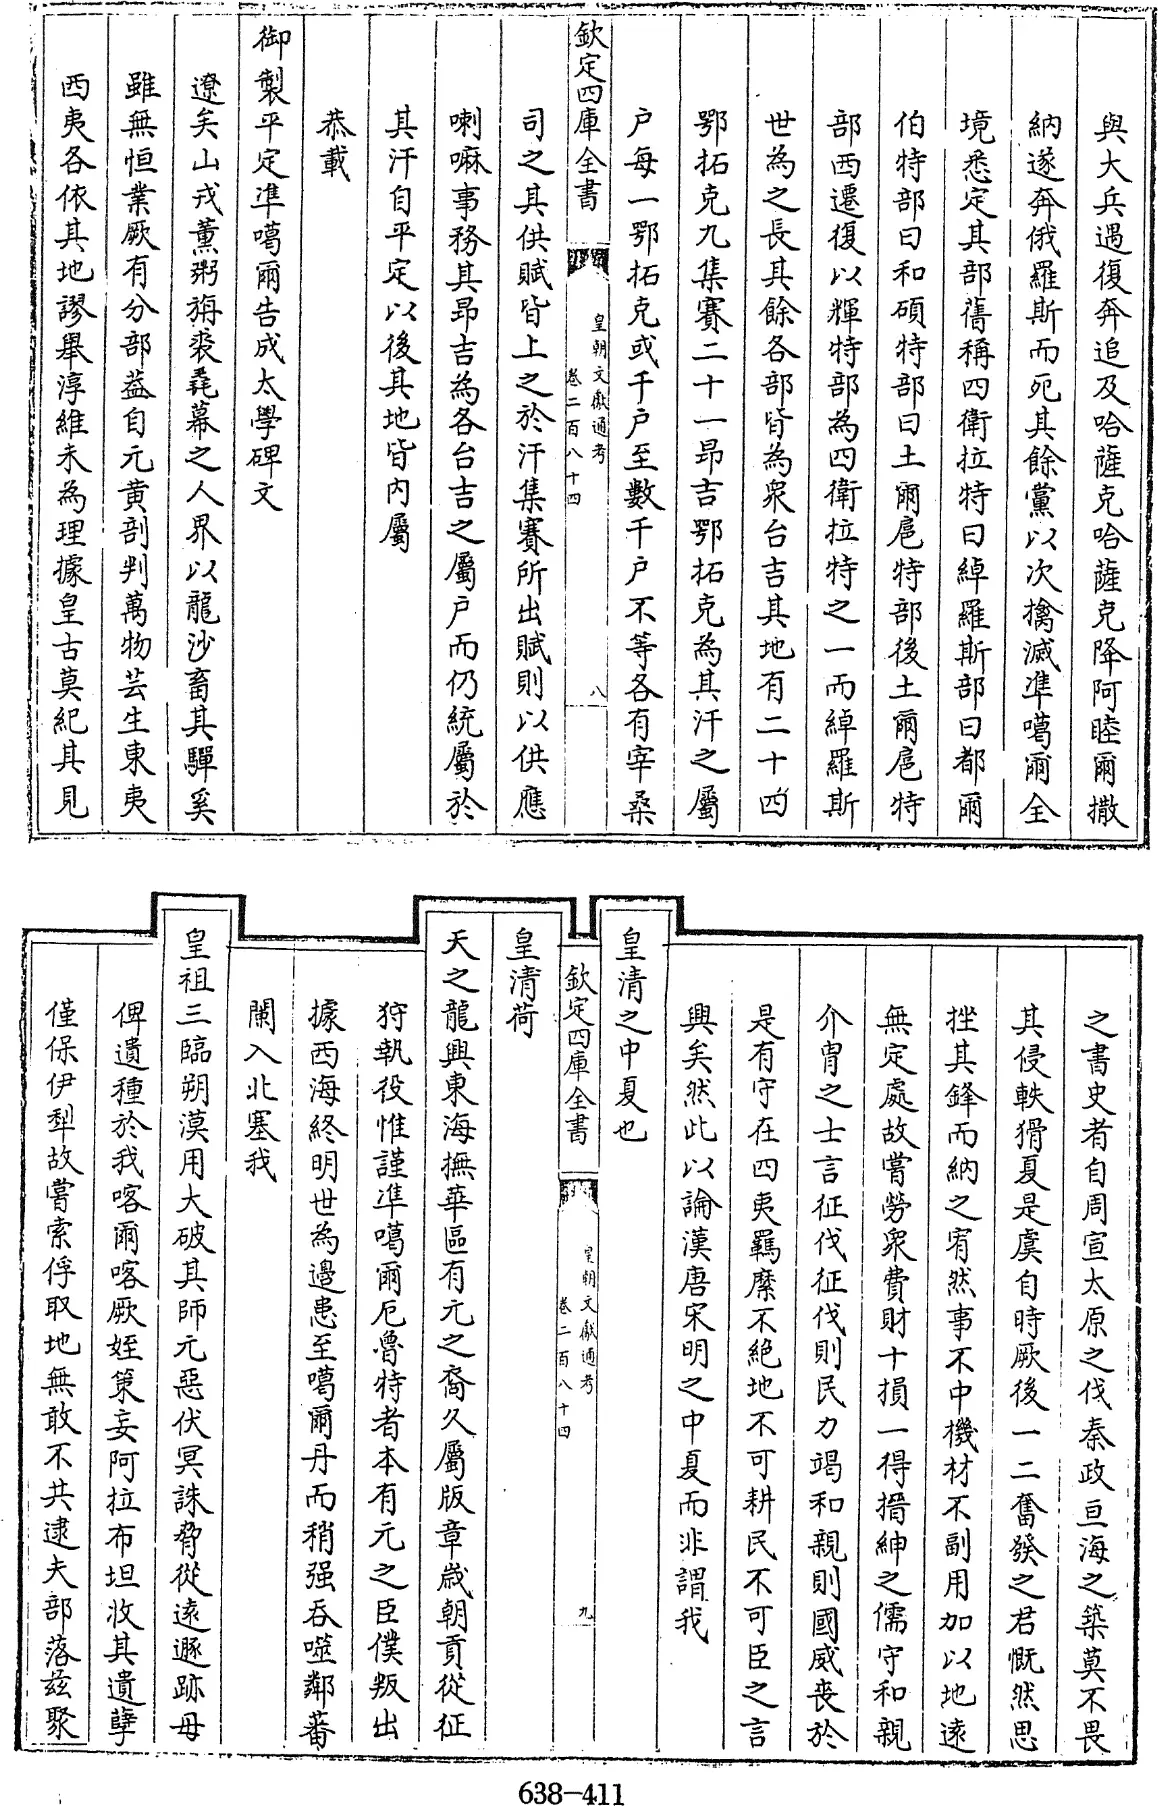 與大兵遇復奔追及哈薩克哈薩克降阿睦爾撒
納遂奔俄羅斯而死其餘黨以次擒滅準噶爾全
境悉定其部舊稱四衛拉特曰綽羅斯部曰都爾
伯特部曰和碩特部曰土爾扈特部後土爾扈特
部西遷復以輝特部為四衛拉特之一而綽羅斯
世為之長其餘各部皆為衆台吉其地有二十四
鄂拓克九集賽二十一昂吉鄂拓克為其汗之屬
户每一鄂拓克或千户至數千户不等各有宰桑
欽定四庫全書
皇朝文獻通考
卷二百八十四
八
司之其供賦皆上之於汗集賽所出賦則以供應
喇嘛事務其昂吉為各台吉之屬户而仍統屬於
其汗自平定以後其地皆内屬
恭載
御製平定準噶爾告成太學碑文
遼矣山戎薰粥旃裘毳幕之人界以龍沙畜其驒奚
雖無恒業厥有分部蓋自元黄剖判萬物芸生東夷
西夷各依其地謬舉淳維未為理據皇古莫紀其見
之書史者自周宣太原之伐秦政亘海之築莫不畏
其侵軼猾夏是虞自時厥後一二奮發之君慨然思
挫其鋒而納之宥然事不中機材不副用加以地遠
無定處故嘗勞衆費財十損一得搢紳之儒守和親
介冑之士言征伐征伐則民力竭和親則國威喪於
是有守在四夷羈縻不絶地不可耕民不可臣之言
興矣然此以論漢唐宋明之中夏而非謂我
皇清之中夏也
欽定四庫全書
皇朝文獻通考
卷二百八十四
九
皇清荷
天之龍興東海撫華區有元之裔久屬版章歲朝貢從征
狩執役惟謹準噶爾厄魯特者本有元之臣僕叛出
據西海終明世為邉患至噶爾丹而稍强吞噬鄰蕃
闌入北塞我
皇祖三臨朔漠用大破其師元惡伏冥誅脅從遠遯跡毋
俾遺種於我喀爾喀厥姪策妄阿拉布坦收其遺孽
僅保伊犁故嘗索俘取地無敢不共逮夫部落茲聚
638-411